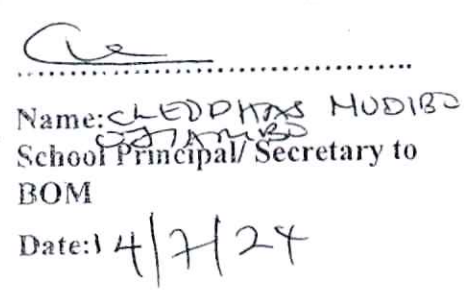 Name: CLEDDHAS MUDIBO
School Principal/ Secretary to
BOM
Date: 14/7/24